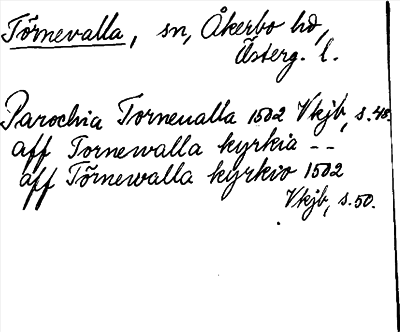 Törnevalla, sn, Åkerbo hd,
Österg. l.
Parochia Torneualla 1502 Vkjb, s. 48.
aff Tornewalla kyrkia --
aff Törnewalla kyrkio 1502
Vkjb, s. 50.